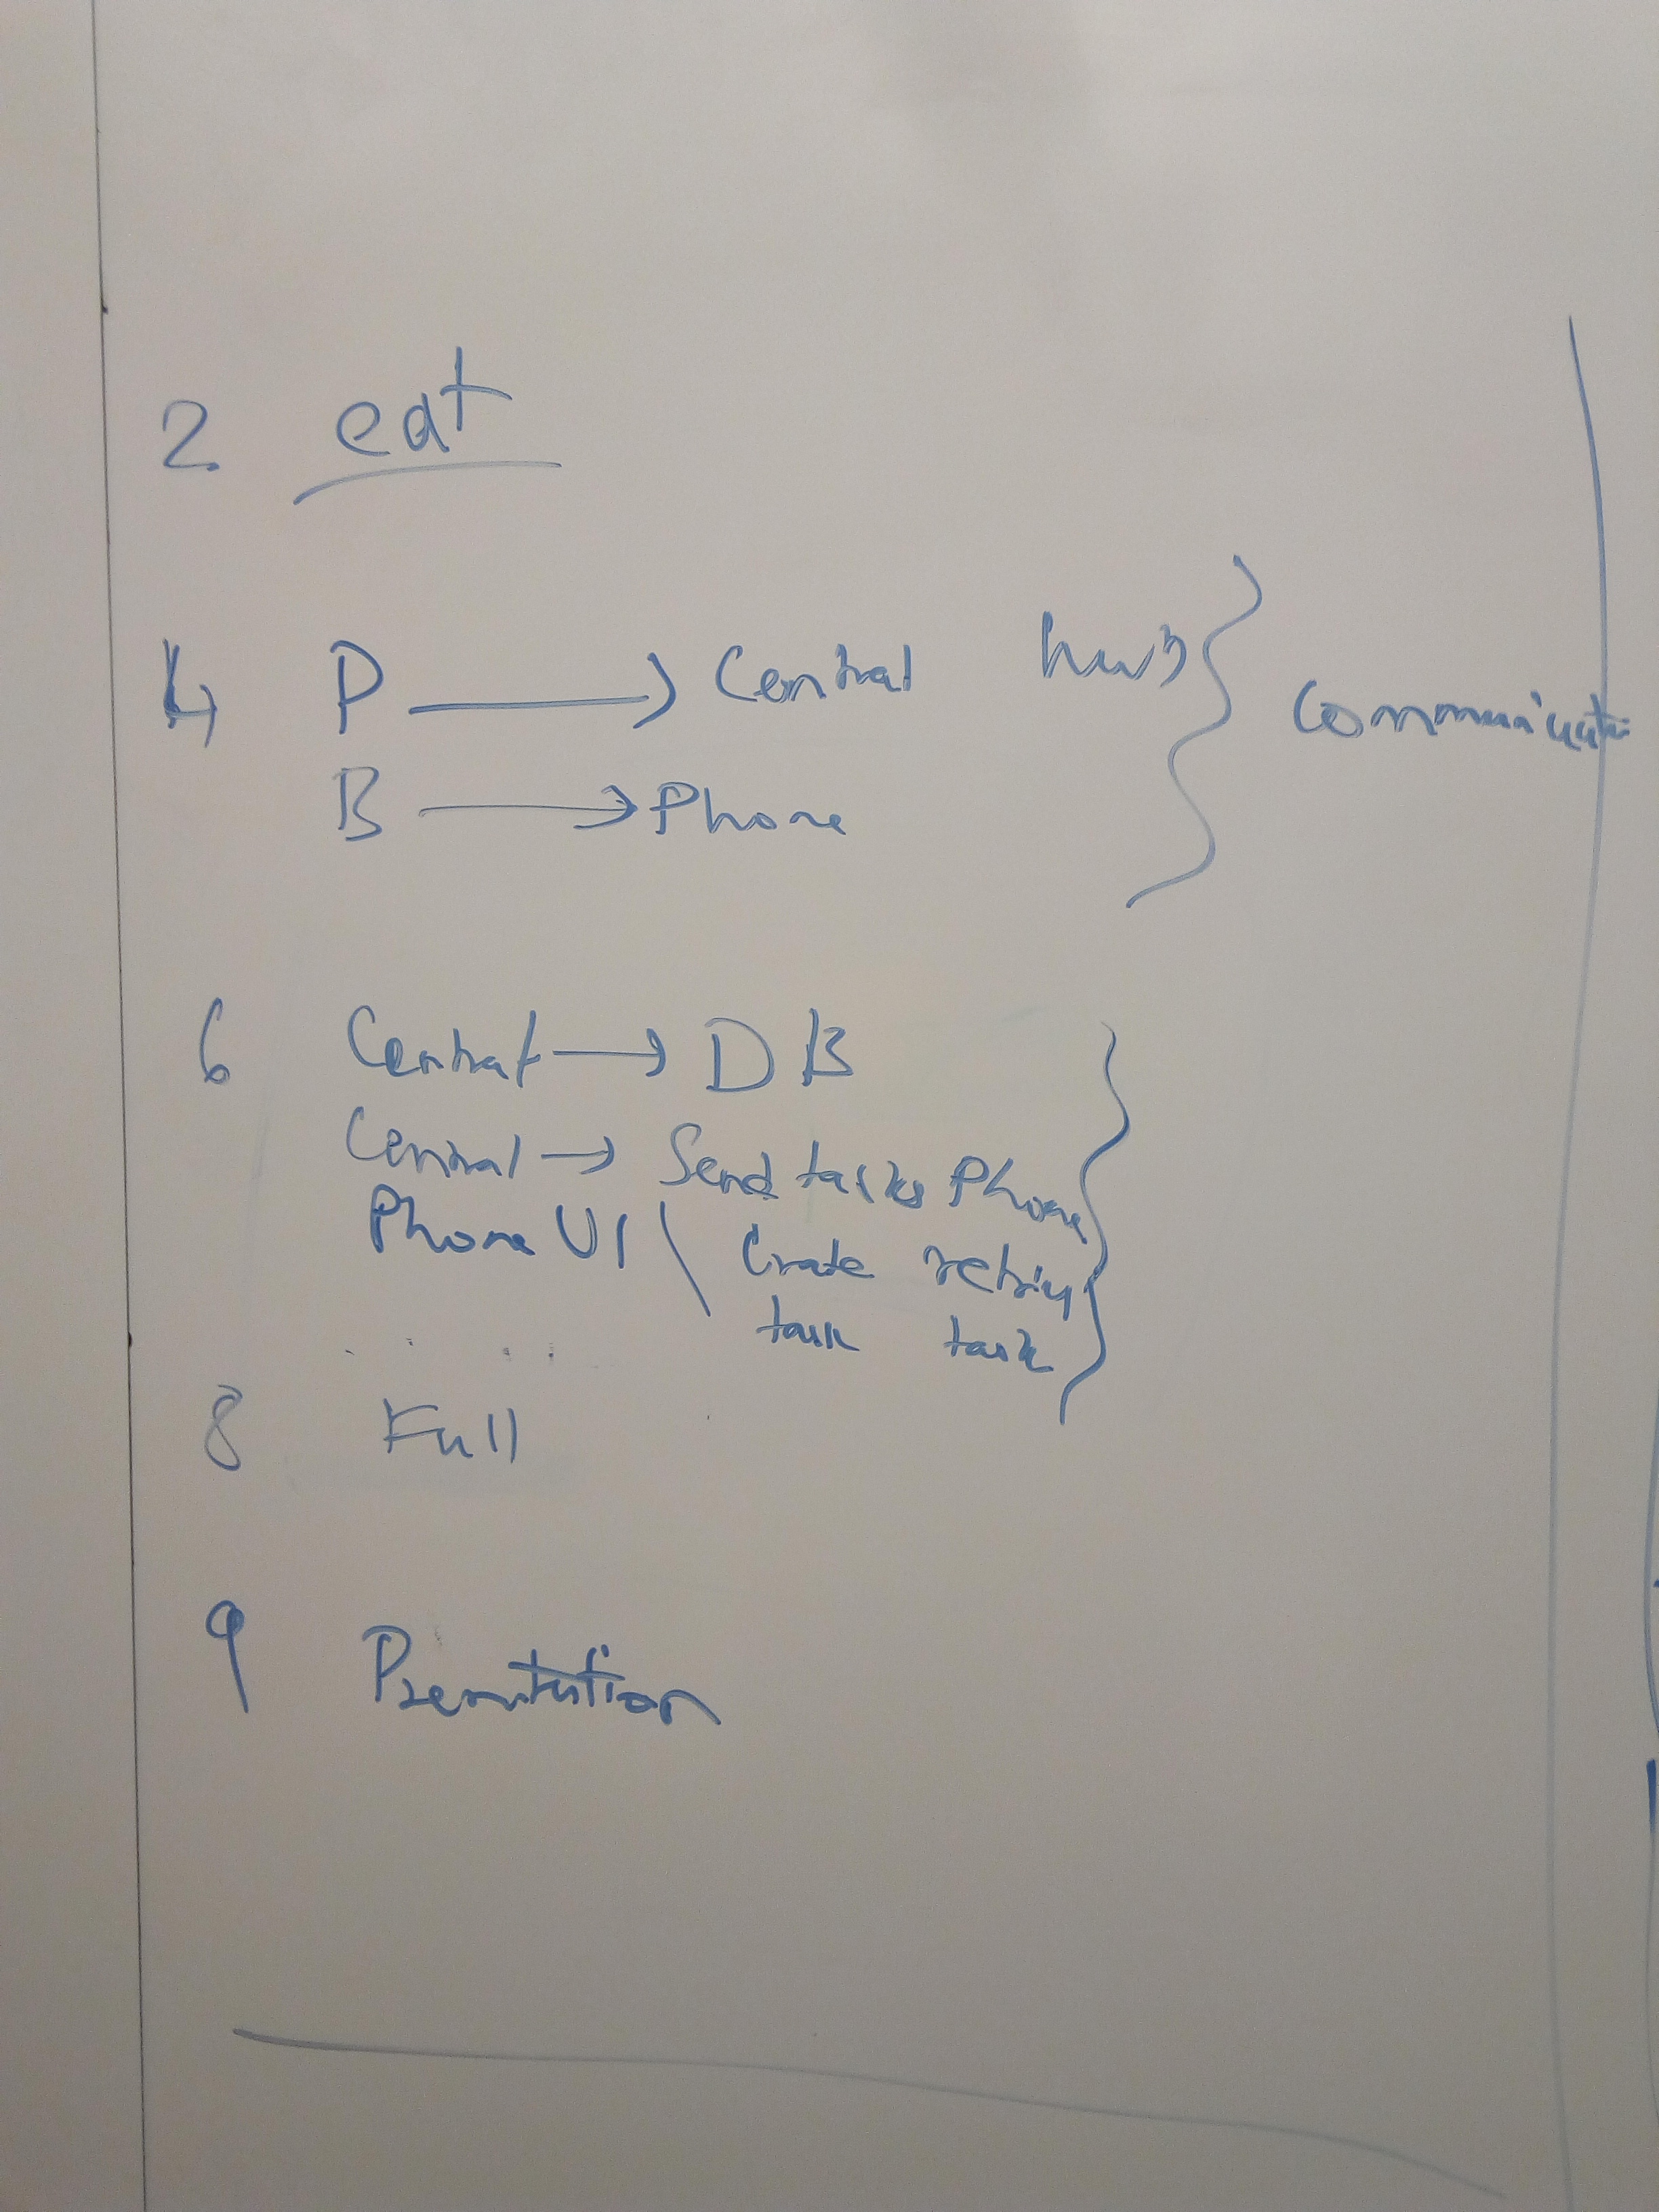 2 eat
4 P → Central hub } Communicati
B → Phone
6 Central → DB
Central → Send tasks Phone
Phone UI \ Create retriev
task task
8 Full
9 Presentation